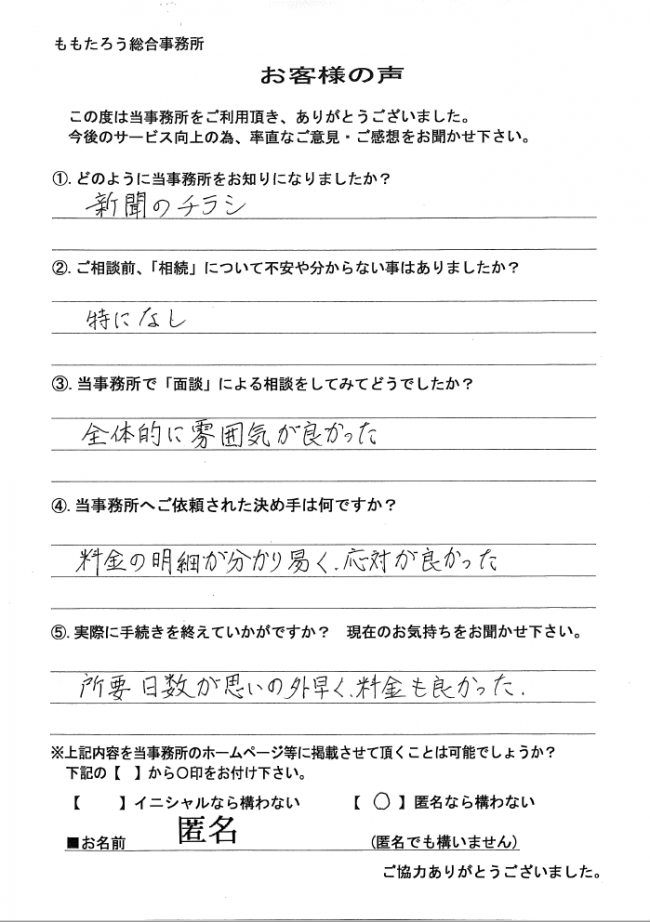 ももたろう総合事務所
お客様の声
この度は当事務所をご利用頂き、ありがとうございました。
今後のサービス向上の為、率直なご意見・ご感想をお聞かせ下さい。
①. どのように当事務所をお知りになりましたか？
新聞のチラシ
②. ご相談前、「相続」について不安や分からない事はありましたか？
特になし
③. 当事務所で「面談」による相談をしてみてどうでしたか？
全体的に雰囲気が良かった
④. 当事務所へご依頼された決め手は何ですか？
料金の明細が分かり易く、応対が良かった
⑤. 実際に手続きを終えていかがですか？　現在のお気持ちをお聞かせ下さい。
所要日数が思いの外早く、料金も良かった.
※上記内容を当事務所のホームページ等に掲載させて頂くことは可能でしょうか？
下記の【　】から〇印をお付け下さい。
【　　】イニシャルなら構わない　　【 〇 】匿名なら構わない
■お名前　匿名　(匿名でも構いません)
ご協力ありがとうございました。